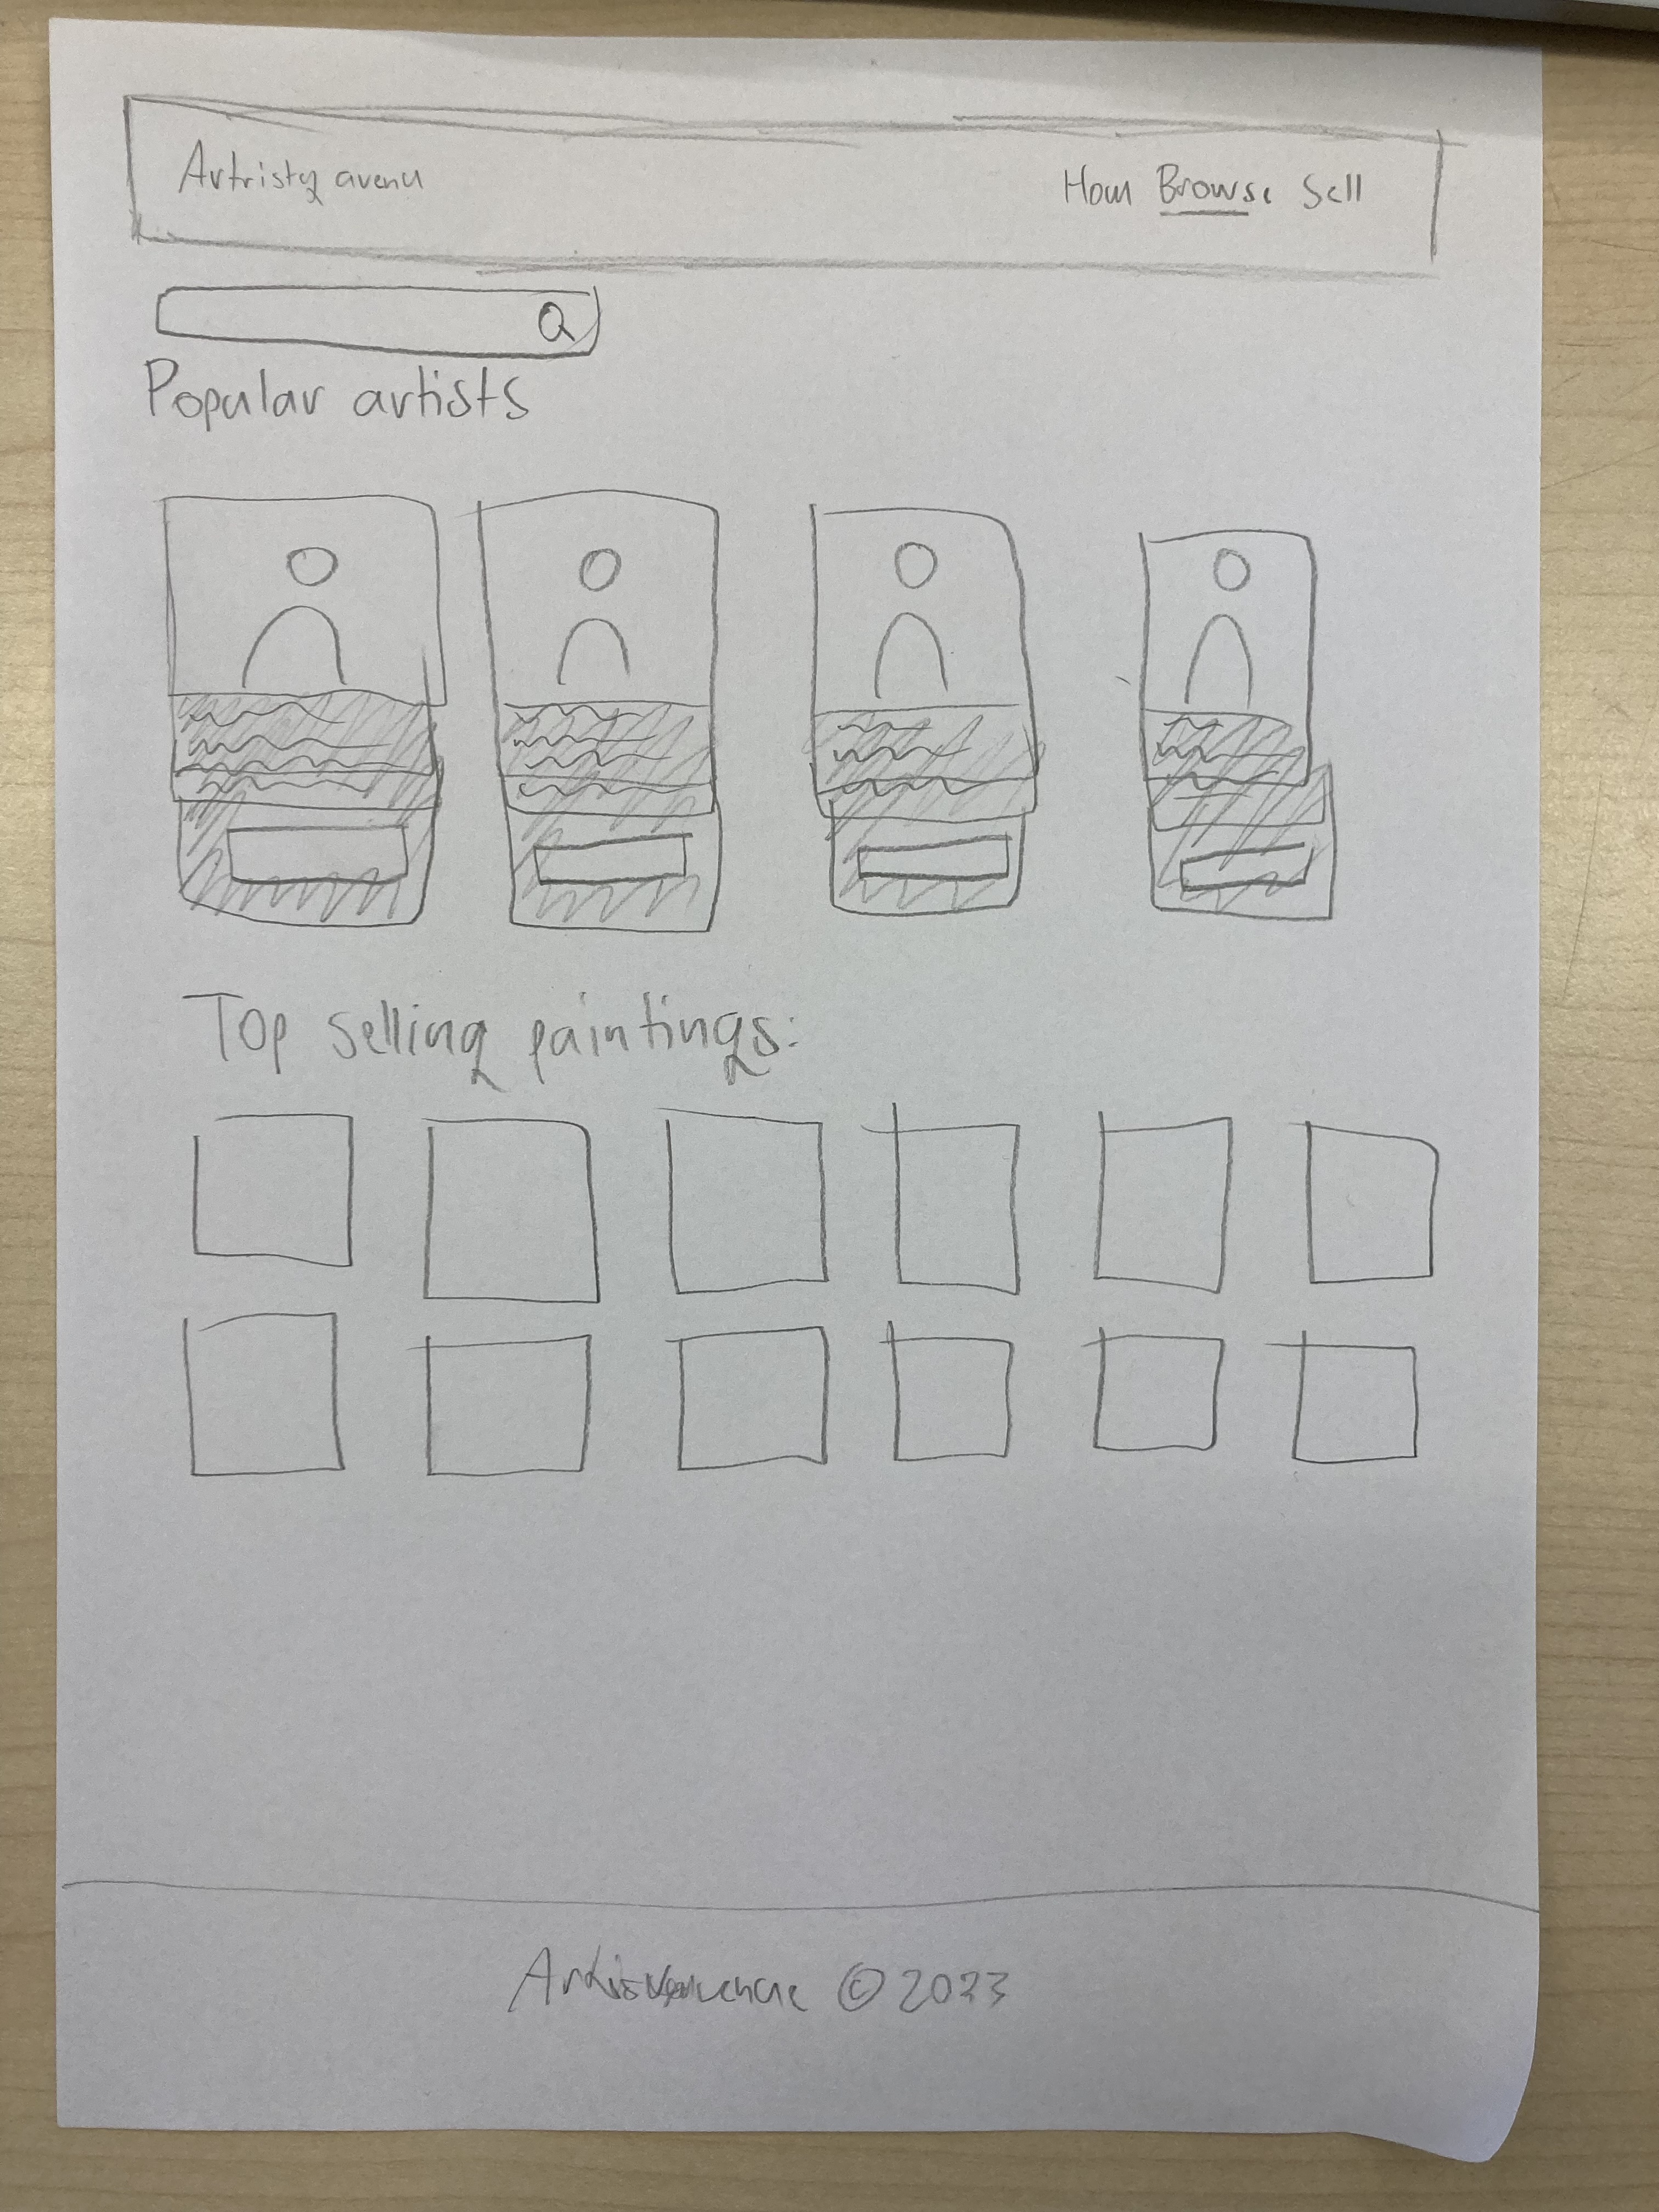 Artristy avenu
Hom Browse Sell
Popular artists
Top selling paintings:
© 2023